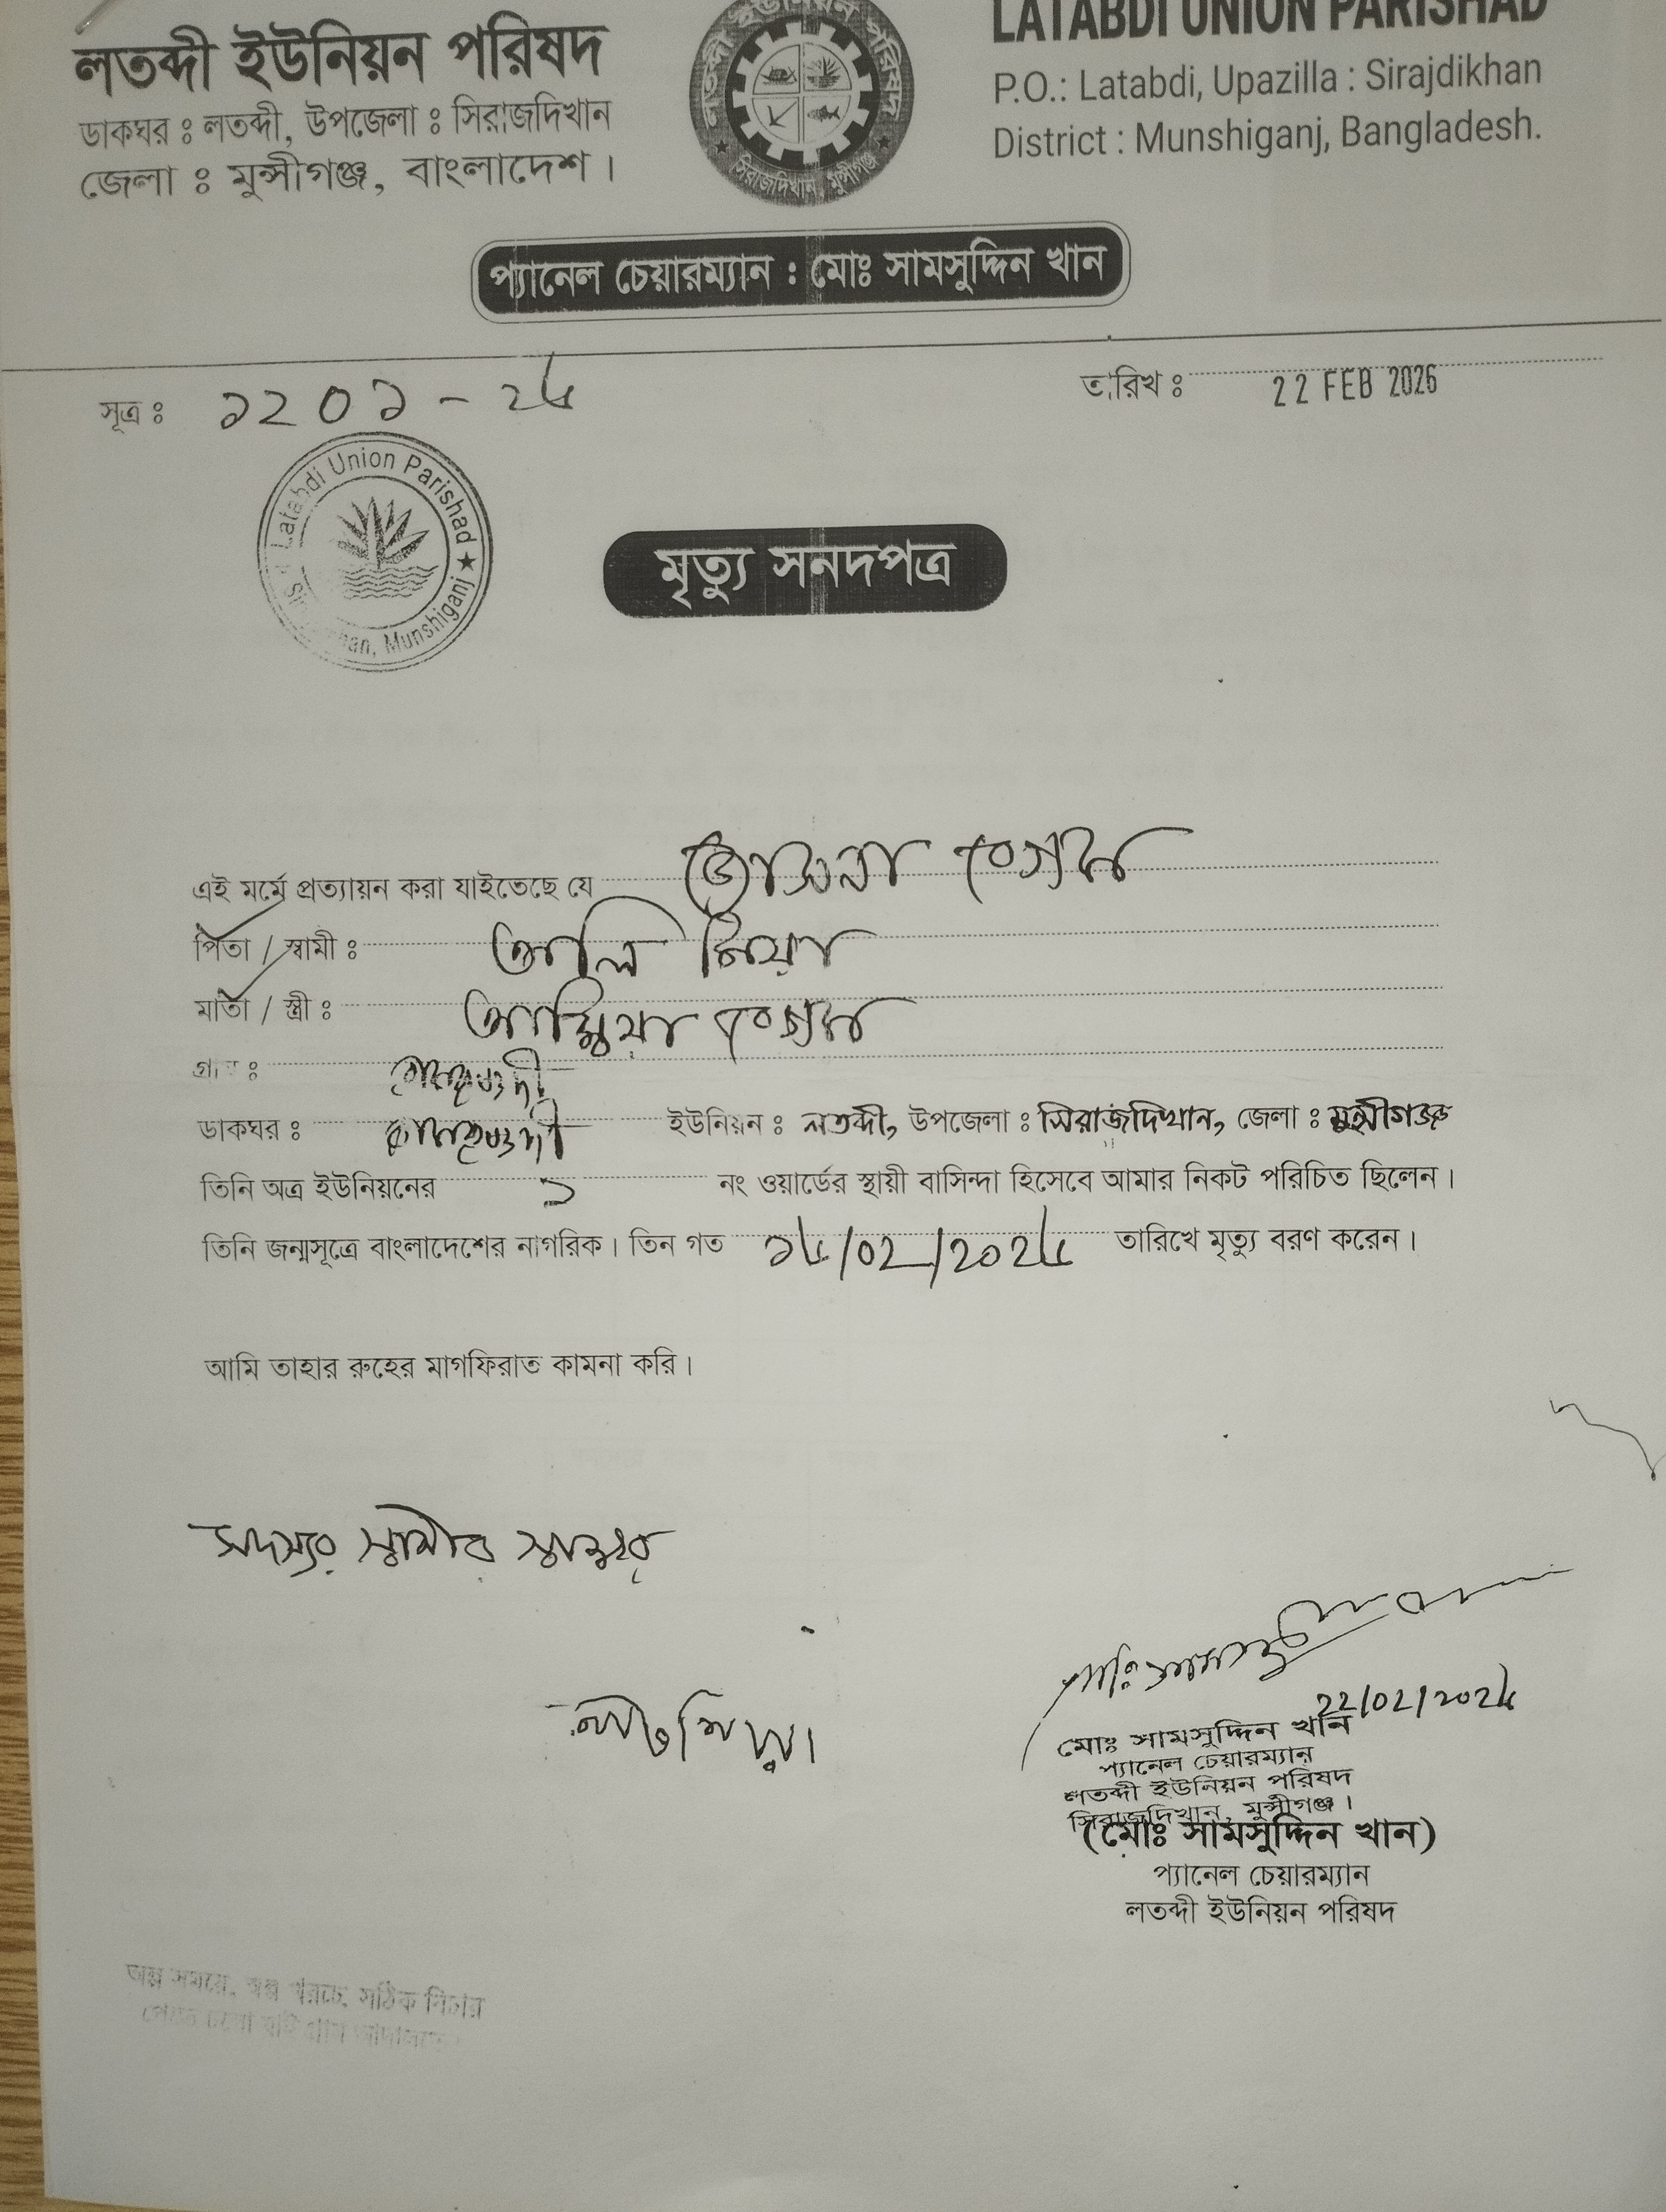 লতব্দী ইউনিয়ন পরিষদ
ডাকঘর ঃ লতব্দী, উপজেলা ঃ সিরাজদিখান
জেলা ঃ মুন্সীগঞ্জ, বাংলাদেশ।
লতব্দী ইউনিয়ন পরিষদ
সিরাজদিখান, মুন্সীগঞ্জ
LATABDI UNION PARISHAD
P.O.: Latabdi, Upazilla : Sirajdikhan
District : Munshiganj, Bangladesh.
প্যানেল চেয়ারম্যান : মোঃ সামসুদ্দিন খান
সূত্র ঃ ১২০১ - ২৬
তারিখ ঃ 22 FEB 2026
Latabdi Union Parishad ★ Munshiganj
মৃত্যু সনদপত্র
এই মর্মে প্রত্যায়ন করা যাইতেছে যে বেগম
পিতা / স্বামী ঃ আলি মিয়া
মাতা / স্ত্রী ঃ আম্বিয়া বেগম
গ্রাম ঃ
ডাকঘর ঃ ইউনিয়ন ঃ লতব্দী, উপজেলা ঃ সিরাজদিখান, জেলা ঃ মুন্সীগঞ্জ
তিনি অত্র ইউনিয়নের ১ নং ওয়ার্ডের স্থায়ী বাসিন্দা হিসেবে আমার নিকট পরিচিত ছিলেন।
তিনি জন্মসূত্রে বাংলাদেশের নাগরিক। তিন গত ১৬/০২/২০২৬ তারিখে মৃত্যু বরণ করেন।
আমি তাহার রুহের মাগফিরাত কামনা করি।
সদস্যর স্বামীর স্বাক্ষর
২২/০২/২০২৬
মোঃ সামসুদ্দিন খান
প্যানেল চেয়ারম্যান
লতব্দী ইউনিয়ন পরিষদ
সিরাজদিখান, মুন্সীগঞ্জ।
(মোঃ সামসুদ্দিন খান)
প্যানেল চেয়ারম্যান
লতব্দী ইউনিয়ন পরিষদ
অল্প সময়ে, স্বল্প খরচে, সঠিক বিচার